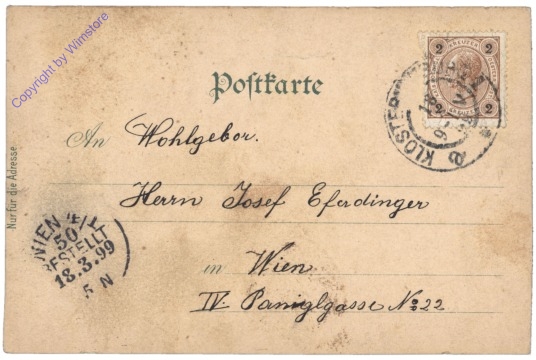 Copyright by Wimstore
Postkarte
2 KREUZER 2
2 2
KLOSTER
An Wohlgebor.
Herrn Josef Eferdinger
in Wien
IV. Paniglgasse No 22
Nur für die Adresse
WIEN 4/1
50
BESTELLT
18.3.99
5 N